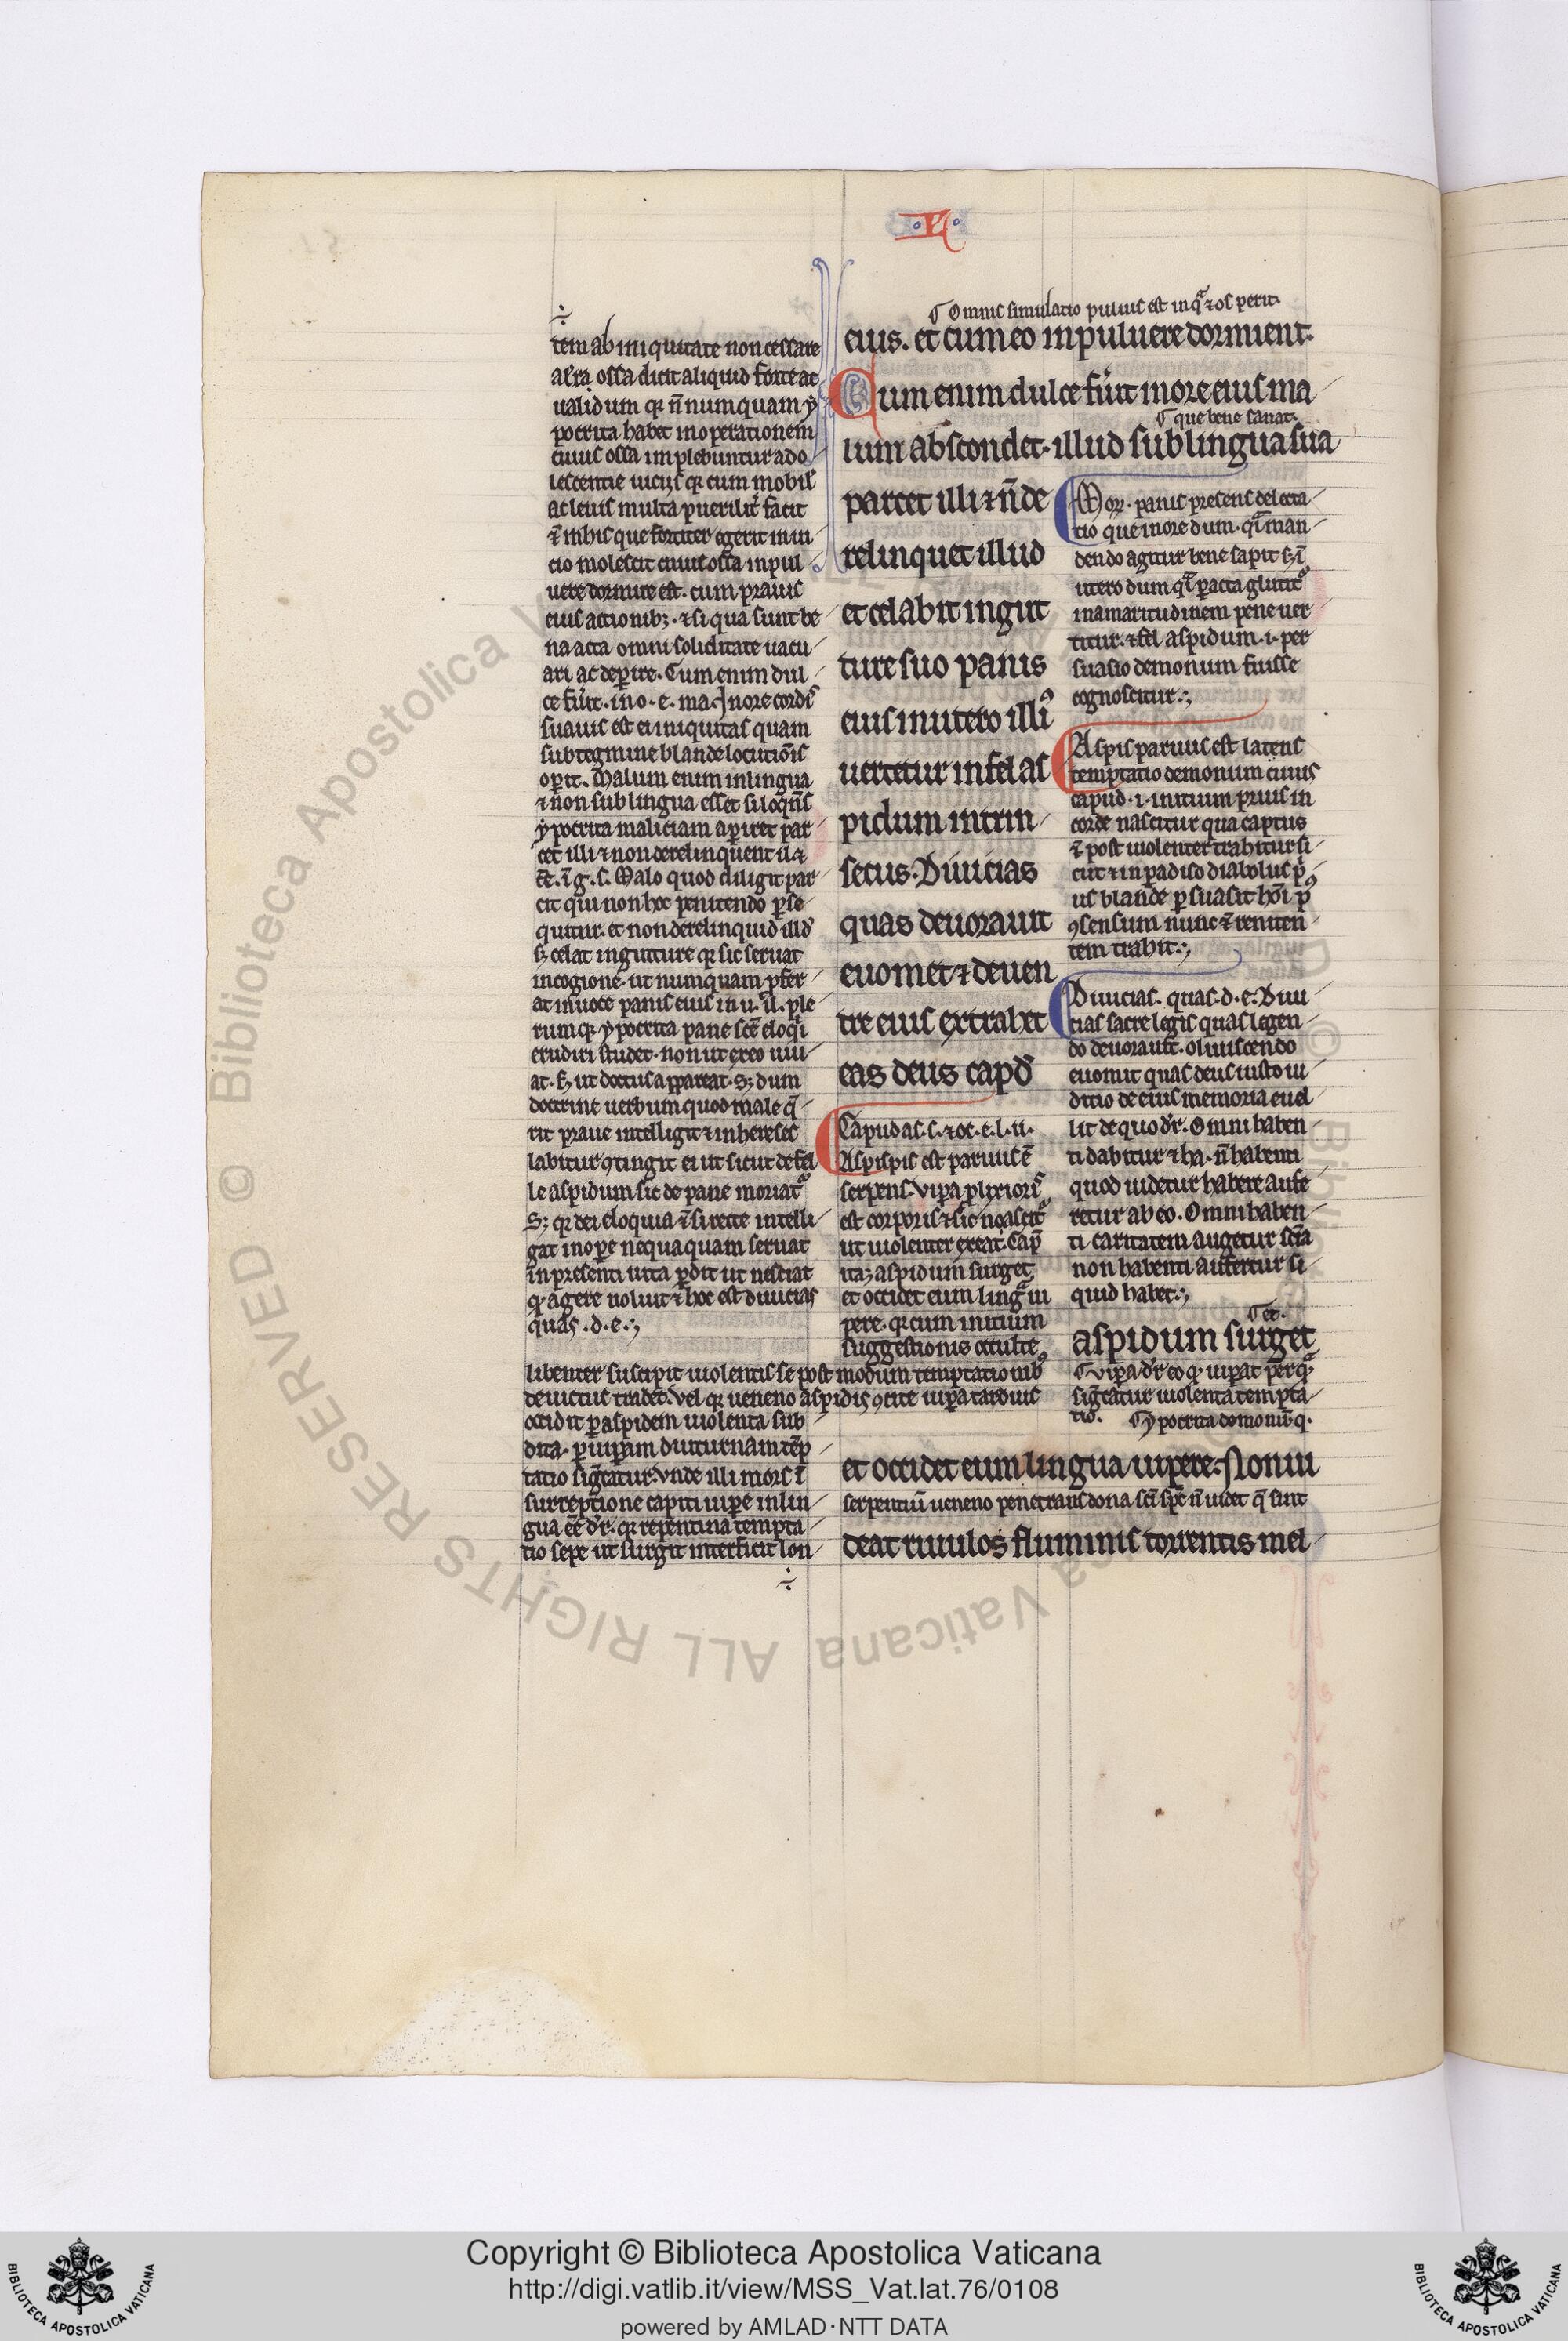 ·L·
tem ab iniquitate non cessare
al'ra. ossa dicit aliquid forte ac
ualidum qr n̄ numquam ẏ
pocrita habet in operationem
cuius ossa implebuntur ado
lescentie uicijs qr cum mobil'
ac leuis multa puerilit' facit
⁊ in his que fortiter egerit in ui
cio molescit cuius ossa in pul
uere dormire est. cum prauis
eius actionibꝫ. ⁊ si qua sunt be
na acta omni soliditate uacu
ari ac deꝑire. Cum enim dul
ce fu'it. in o. e. ma. In ore cordis
suauis est ei iniquitas quam
sub tegmine blande locutiōis
oꝑit. Malum enim in lingua
⁊ non sub lingua esset si loqn̄s
ẏpocrita maliciam aꝑiret par
cet illi ⁊ non derelinquent il
Malo quod diligit par
cit qui non hoc penitendo ꝑse
quitur. et non derelinquid illd'
sꝫ celat in gutture qr sic seruat
in cogione. ut numquam ꝓfer
at in uoce panis eius in u. il'. ple
rumqꝫ ẏpocrita pane scē eloqi
erudiri studet. non ut ex eo uiu
at. sꝫ ut doctus appareat. Sꝫ dum
doctrine uerbum quod male q̄
rit praue intelligit ⁊ in hereses
labitur ꝯtingit ei ut sicut de fel
le aspidum sic de pane moriat'
Sꝫ qr dei eloquia ⁊ si recte intelli
gat in oꝑe nequaquam seruat
in presenti uita ꝑdit ut nesciat
qꝫ agere noluit ⁊ hoc est diuicias
quas .d.e.
libenter suscipit uiolentis se postmodum temptationibꝰ
deuictus tradet. Vel qr ueneno aspidis ꝯcite uiꝑa tardius
occidit ꝑ aspidem uiolenta sub
dita. ꝑ uiꝑam diuturnam tēp
tatio sig̃tatur. Vnde illi mors ī
surreptione capiti uiꝑe in lin
gua eē d'r. qr repentina tempta
tio sepe ut surgit interficit lon
¶ Omnis simulatio puluis est in qa ⁊ os perit.
eius. et cum eo in puluere dormient.
Cum enim dulce fu'it in ore eius ma
¶ que bene sanat.
lum abscondet. illud sub lingua sua
parcet illi ⁊ n̄ de
relinquet illud
et celabit in gut
ture suo panis
eius in utero illiꝰ
uertetur in fel as
pidum intrin
secus. Diuicias
quas deuorauit
euomet ⁊ de uen
tre eius extrahet
eas deus capd'
Capud as. s. ⁊ oc. e. l. ui.
Aspispis est paruus ē
serpens. Vipa plixioris
est corporis ⁊ sic noascit'
ut uiolenter exeat. Cap̄
itaꝫ aspidum surget
et occidet eum linga ui
pere. qr cum initium
suggestionis occulte
Mor. panis presens delecta
tio que in ore dum. qi man
dendo agitur bene sapit sꝫ ī
utero dum qi ꝑacta glutit'
in amaritudinem pene uer
titur. ⁊ fel aspidum .i. per
suasio demonum fuisse
cognoscitur.
Aspis paruus est latens
temptatio demonium cuius
capud .i. initium prius in
corde nascitur qua captus
⁊ post uiolenter trahitur si
cut ⁊ in ꝑadiso diabolus p̄
us blande ꝑsuasit hōi ꝑ
ꝯsensum nunc ⁊ reniten
tem trahit.
Diuicias. quas .d.e. Diui
cias sacre legis quas legen
do deuorau't. oliuiscendo
euomit quas deus iusto iu
ditio de eius memoria euel
lit de quo d'r. Omni haben
ti dabitur ⁊ ha. n̄ habenti
quod uidetur habere aufe
retur ab eo. Omni haben
ti caritatem augetur scīa
non habenti auffertur si
quid habet.
¶ et.
aspidum surget
¶ Vipa d'r eo qꝫ ui parat per qa
sig̃tatur uiolenta tempta
tio. ¶ ẏpocrita
et occidet eum lingua uipere. Non ui
serpentiū ueneno penetrans dona scī sp̄c n̄ uidet q̄ sunt
deat riuulos fluminis torrentis mel
Copyright © Biblioteca Apostolica Vaticana
http://digi.vatlib.it/view/MSS_Vat.lat.76/0108
powered by AMLAD·NTT DATA
BIBLIOTECA APOSTOLICA VATICANA
BIBLIOTECA APOSTOLICA VATICANA
© Biblioteca Apostolica Vaticana ALL RIGHTS RESERVED